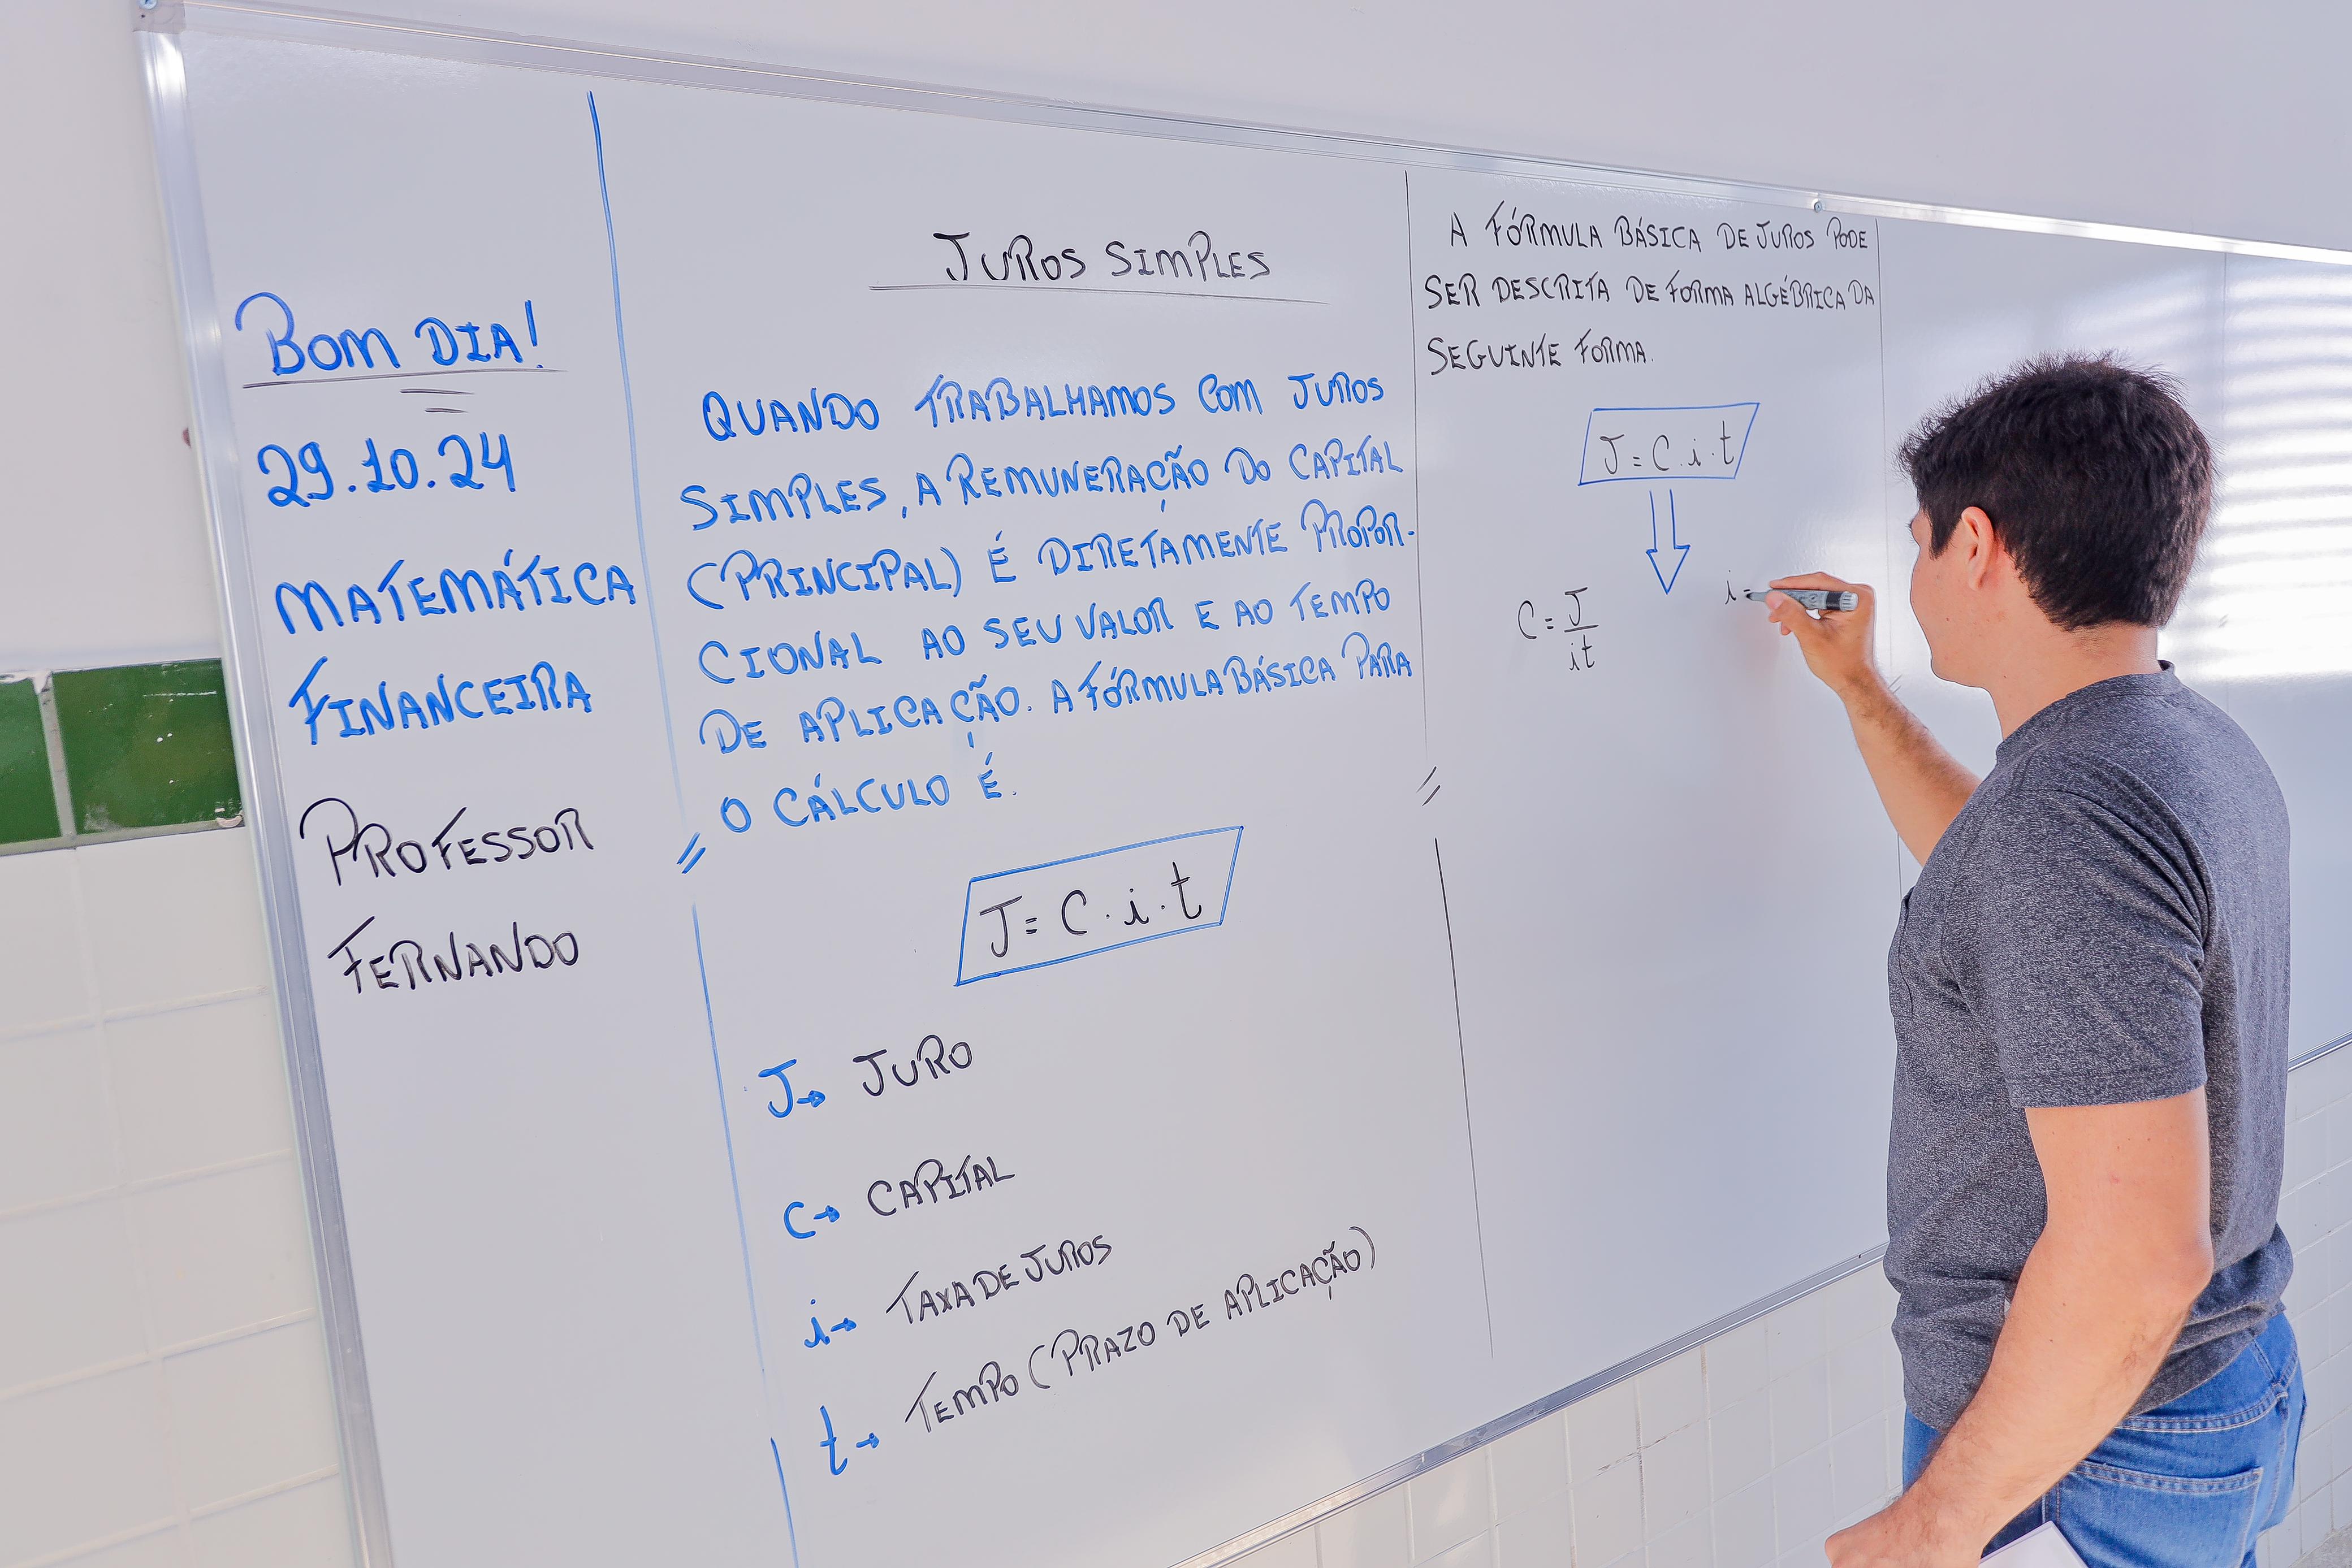 BOM DIA!
29.10.24
MATEMÁTICA
FINANCEIRA
PROFESSOR
FERNANDO
JUROS SIMPLES
QUANDO TRABALHAMOS COM JUROS
SIMPLES, A REMUNERAÇÃO DO CAPITAL
(PRINCIPAL) É DIRETAMENTE PROPOR-
CIONAL AO SEU VALOR E AO TEMPO
DE APLICAÇÃO. A FÓRMULA BÁSICA PARA
O CÁLCULO É.
J = C . i . t
J → JURO
C → CAPITAL
i → TAXA DE JUROS
t → TEMPO (PRAZO DE APLICAÇÃO)
A FÓRMULA BÁSICA DE JUROS PODE
SER DESCRITA DE FORMA ALGÉBRICA DA
SEGUINTE FORMA.
J = C . i . t
C = J
it
i =